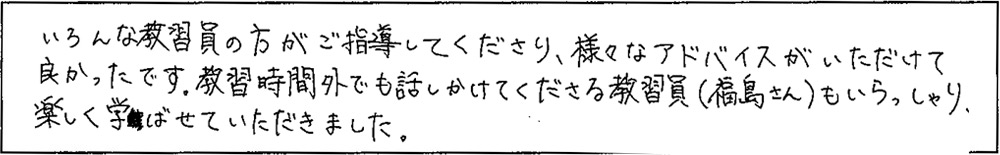 いろんな教習員の方がご指導してくださり、様々なアドバイスがいただけて
良かったです。教習時間外でも話しかけてくださる教習員(福島さん)もいらっしゃり、
楽しく学ばせていただきました。